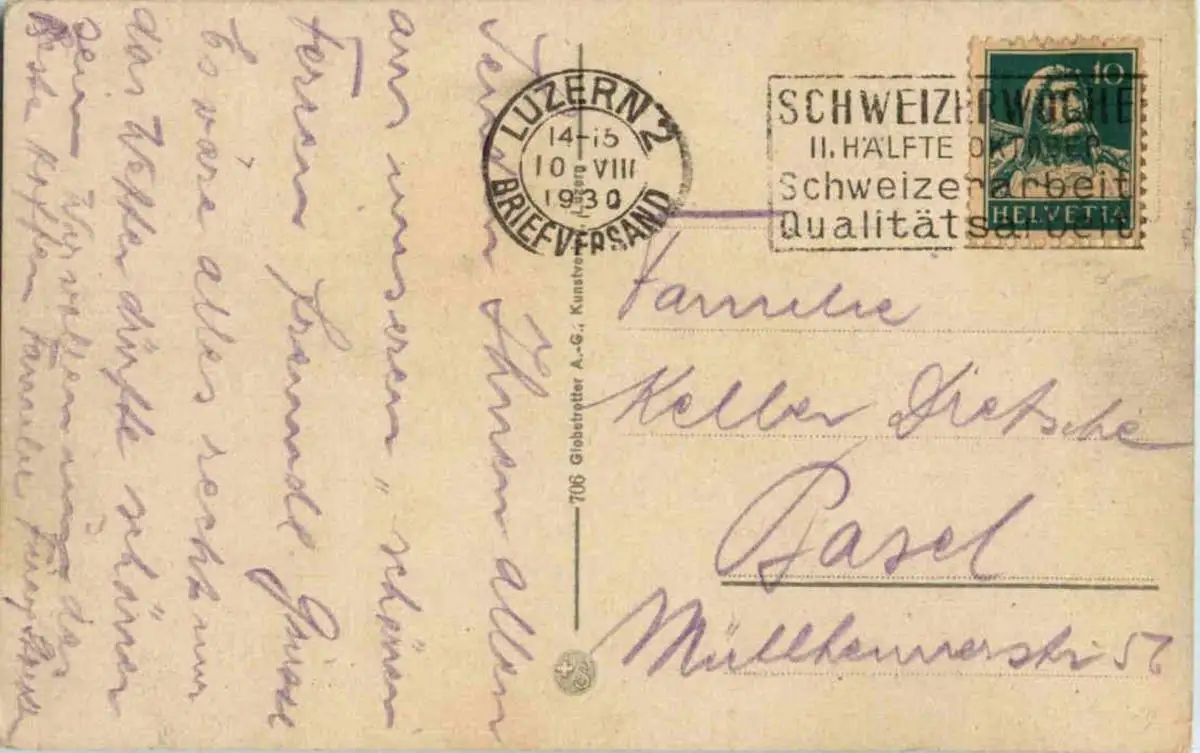 Senden Ihnen allen
aus unseren „schönen
Ferien freundl. Grüsse
Es wäre alles recht nur
das Wetter dürfte schöner
sein. Wir wollen
Beste Familie
LUZERN 2
14-15
10 VIII
1930
BRIEFVERSAND
SCHWEIZERWOCHE
II. HÄLFTE OKTOBER
Schweizerarbeit
Qualitätsarbeit
10
HELVETIA
706 Globetrotter A.-G., Kunstverlag, Luzern
Familie
Keller Dietsche
Basel
Müllheimerstr. 57